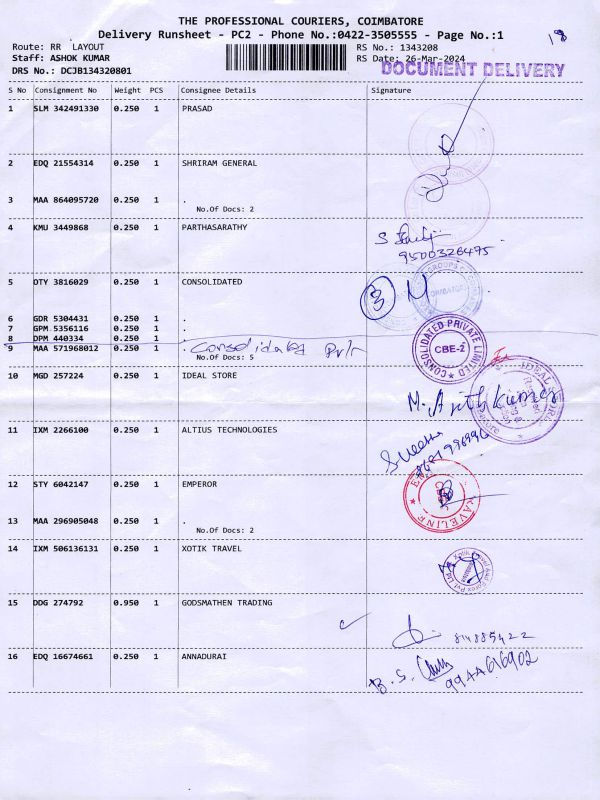 THE PROFESSIONAL COURIERS, COIMBATORE
Delivery Runsheet - PC2 - Phone No.:0422-3505555 - Page No.:1
18
Route: RR LAYOUT
RS No.: 1343208
Staff: ASHOK KUMAR
RS Date: 26-Mar-2024
DRS No.: DCJB134320801
DOCUMENT DELIVERY
S No Consignment No Weight PCS Consignee Details Signature
1 SLM 342491330 0.250 1 PRASAD
2 EDQ 21554314 0.250 1 SHRIRAM GENERAL
3 MAA 864095720 0.250 1 .
No.Of Docs: 2
4 KMU 3449868 0.250 1 PARTHASARATHY
9500326475
5 OTY 3816029 0.250 1 CONSOLIDATED
3
6 GDR 5304431 0.250 1 .
7 GPM 5356116 0.250 1 .
8 DPM 440334 0.250 1 .
9 MAA 571968012 0.250 1 .
No.Of Docs: 5
CONSOLIDATED PRIVATE LIMITED
CBE-2
10 MGD 257224 0.250 1 IDEAL STORE
M. Ajithkumar
11 IXM 2266100 0.250 1 ALTIUS TECHNOLOGIES
12 STY 6042147 0.250 1 EMPEROR
13 MAA 296905048 0.250 1 .
No.Of Docs: 2
14 IXM 506136131 0.250 1 XOTIK TRAVEL
15 DDG 274792 0.950 1 GODSMATHEN TRADING
16 EDQ 16674661 0.250 1 ANNADURAI
B. S.